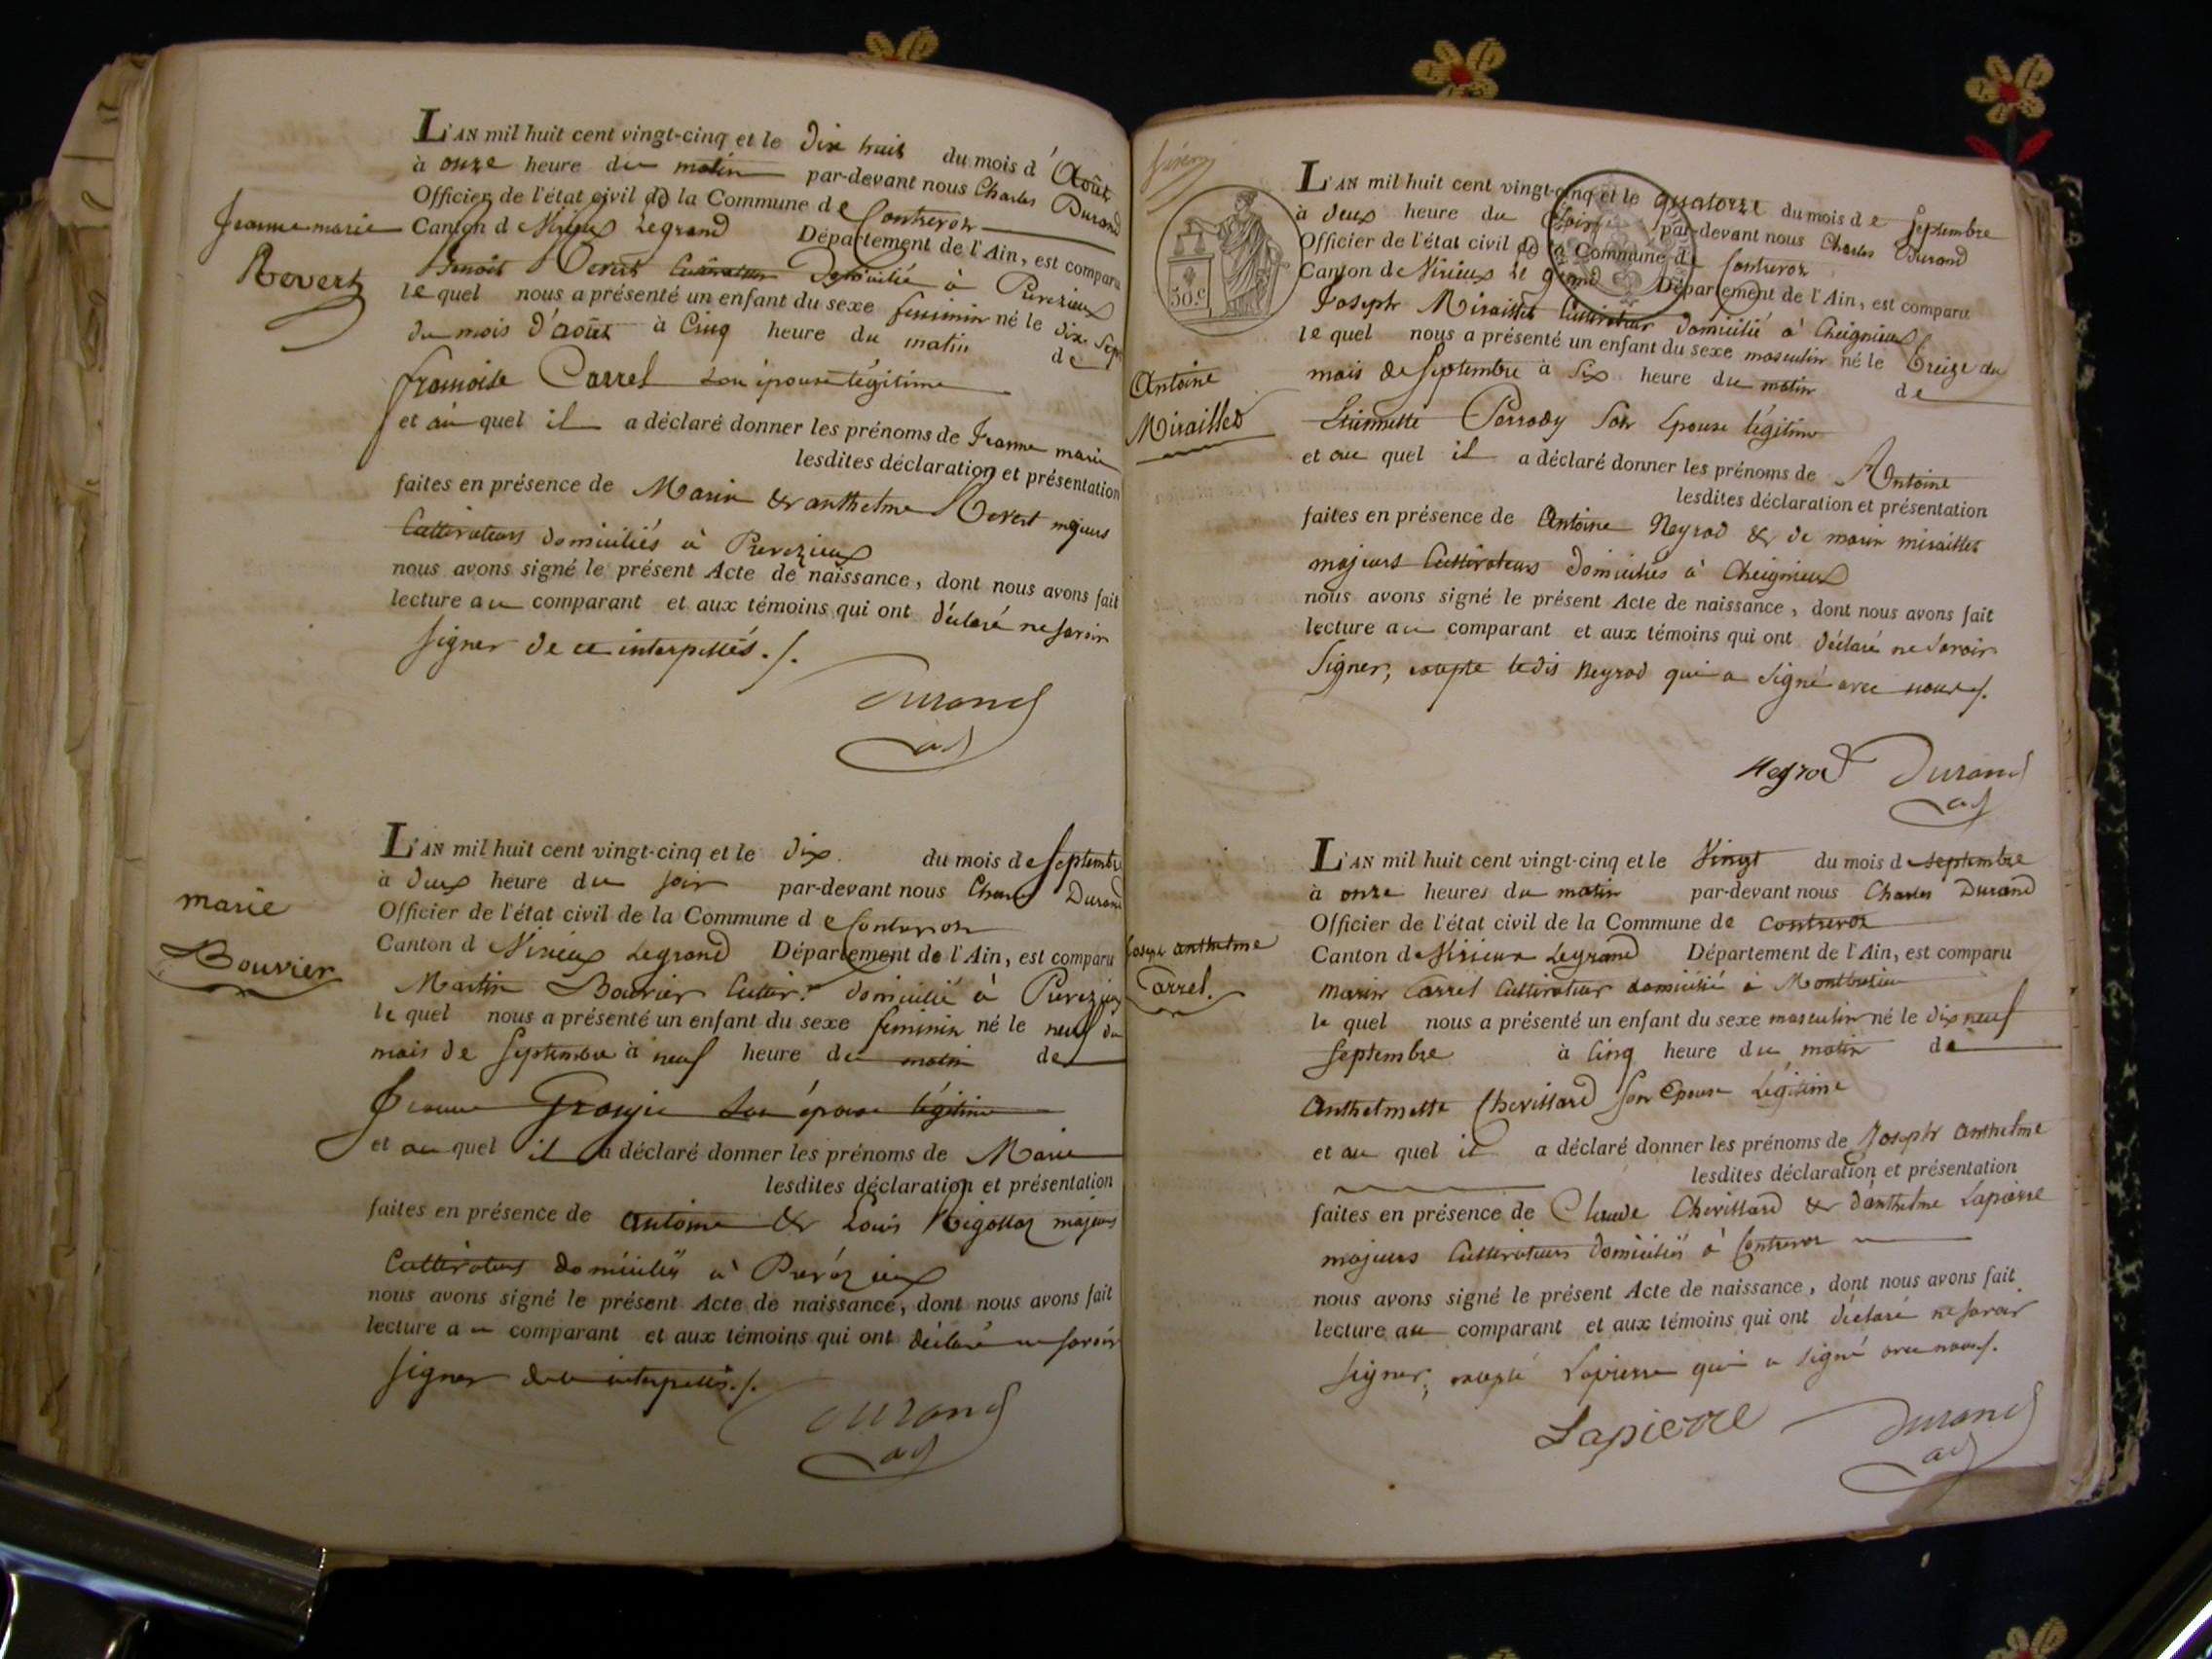 Jeanne marie
Revert
L'AN mil huit cent vingt-cinq et le dix huit du mois d'Août
à onze heure du matin par-devant nous Charles Durand
Officier de l'état civil de la Commune de Contrevoz
Canton de Virieux Legrand Département de l'Ain, est comparu
Benoit Revert Cultivateur domicilié à Prevezieux
lequel nous a présenté un enfant du sexe feminin né le dix sept
du mois d'août à Cinq heure du matin de
francoise Carrel son épouse légitime
et au quel il a déclaré donner les prénoms de Jeanne marie
lesdites déclaration et présentation
faites en présence de Marin & anthelme Revert majeurs
Cultivateurs domiciliés à Prevezieux
nous avons signé le présent Acte de naissance, dont nous avons fait
lecture au comparant et aux témoins qui ont déclaré ne savoir
signer de ce interpellés./.
Durand
adj
marie
Bouvier
L'AN mil huit cent vingt-cinq et le dix du mois de Septembre
à deux heure du soir par-devant nous Charles Durand
Officier de l'état civil de la Commune de Contrevoz
Canton d Virieux Legrand Département de l'Ain, est comparu
Martin Bouvier Cultiv.r domicilié à Prevezieux
le quel nous a présenté un enfant du sexe feminin né le neuf du
mois de Septembre à neuf heure du matin de
Jeanne son épouse légitime
et au quel il a déclaré donner les prénoms de Marie
lesdites déclaration et présentation
faites en présence de antoine & Louis Rigollaz majeurs
Cultivateurs domiciliés à Prevézieux
nous avons signé le présent Acte de naissance, dont nous avons fait
lecture au comparant et aux témoins qui ont déclaré ne savoir
signer de ce interpellés./.
Durand
adj
50.c
Antoine
Miraillet
L'AN mil huit cent vingt-cinq et le quatorze du mois de Septembre
à deux heure du Soir par-devant nous Charles Durand
Officier de l'état civil de la Commune de Contrevoz
Canton de Virieux Le grand Département de l'Ain, est comparu
Joseph Miraillet Cultivateur domicilié à Cheignieux
le quel nous a présenté un enfant du sexe masculin né le treize du
mois de Septembre à Six heure du matin de
Etiennette Perrody Son Epouse légitime
et au quel il a déclaré donner les prénoms de Antoine
lesdites déclaration et présentation
faites en présence de Antoine Neyrod & de marin miraillet
majeurs Cultivateurs domiciliés à Cheignieux
nous avons signé le présent Acte de naissance, dont nous avons fait
lecture au comparant et aux témoins qui ont déclaré ne Savoir
Signer, excepte ledit Neyrod qui a Signé avec nous./.
Neyrod Durand
adj
Joseph anthelme
Carrel.
L'AN mil huit cent vingt-cinq et le Vingt du mois de septembre
à onze heures du matin par-devant nous Charles Durand
Officier de l'état civil de la Commune de Contrevoz
Canton de Virieux Legrand Département de l'Ain, est comparu
Marin Carrel Cultivateur domicilié à Montbreizieu
le quel nous a présenté un enfant du sexe masculin né le dix neuf
septembre à Cinq heure du matin de
Anthelmette Chevillard Son Epouse Légitime
et au quel il a déclaré donner les prénoms de Joseph Anthelme
lesdites déclaration et présentation
faites en présence de Claude Chevillard & d'anthelme Lapierre
majeurs Cultivateurs domiciliés à Contrevoz
nous avons signé le présent Acte de naissance, dont nous avons fait
lecture au comparant et aux témoins qui ont déclaré ne savoir
signer, excepté Lapierre qui a signé avec nous./.
Lapierre Durand
adj